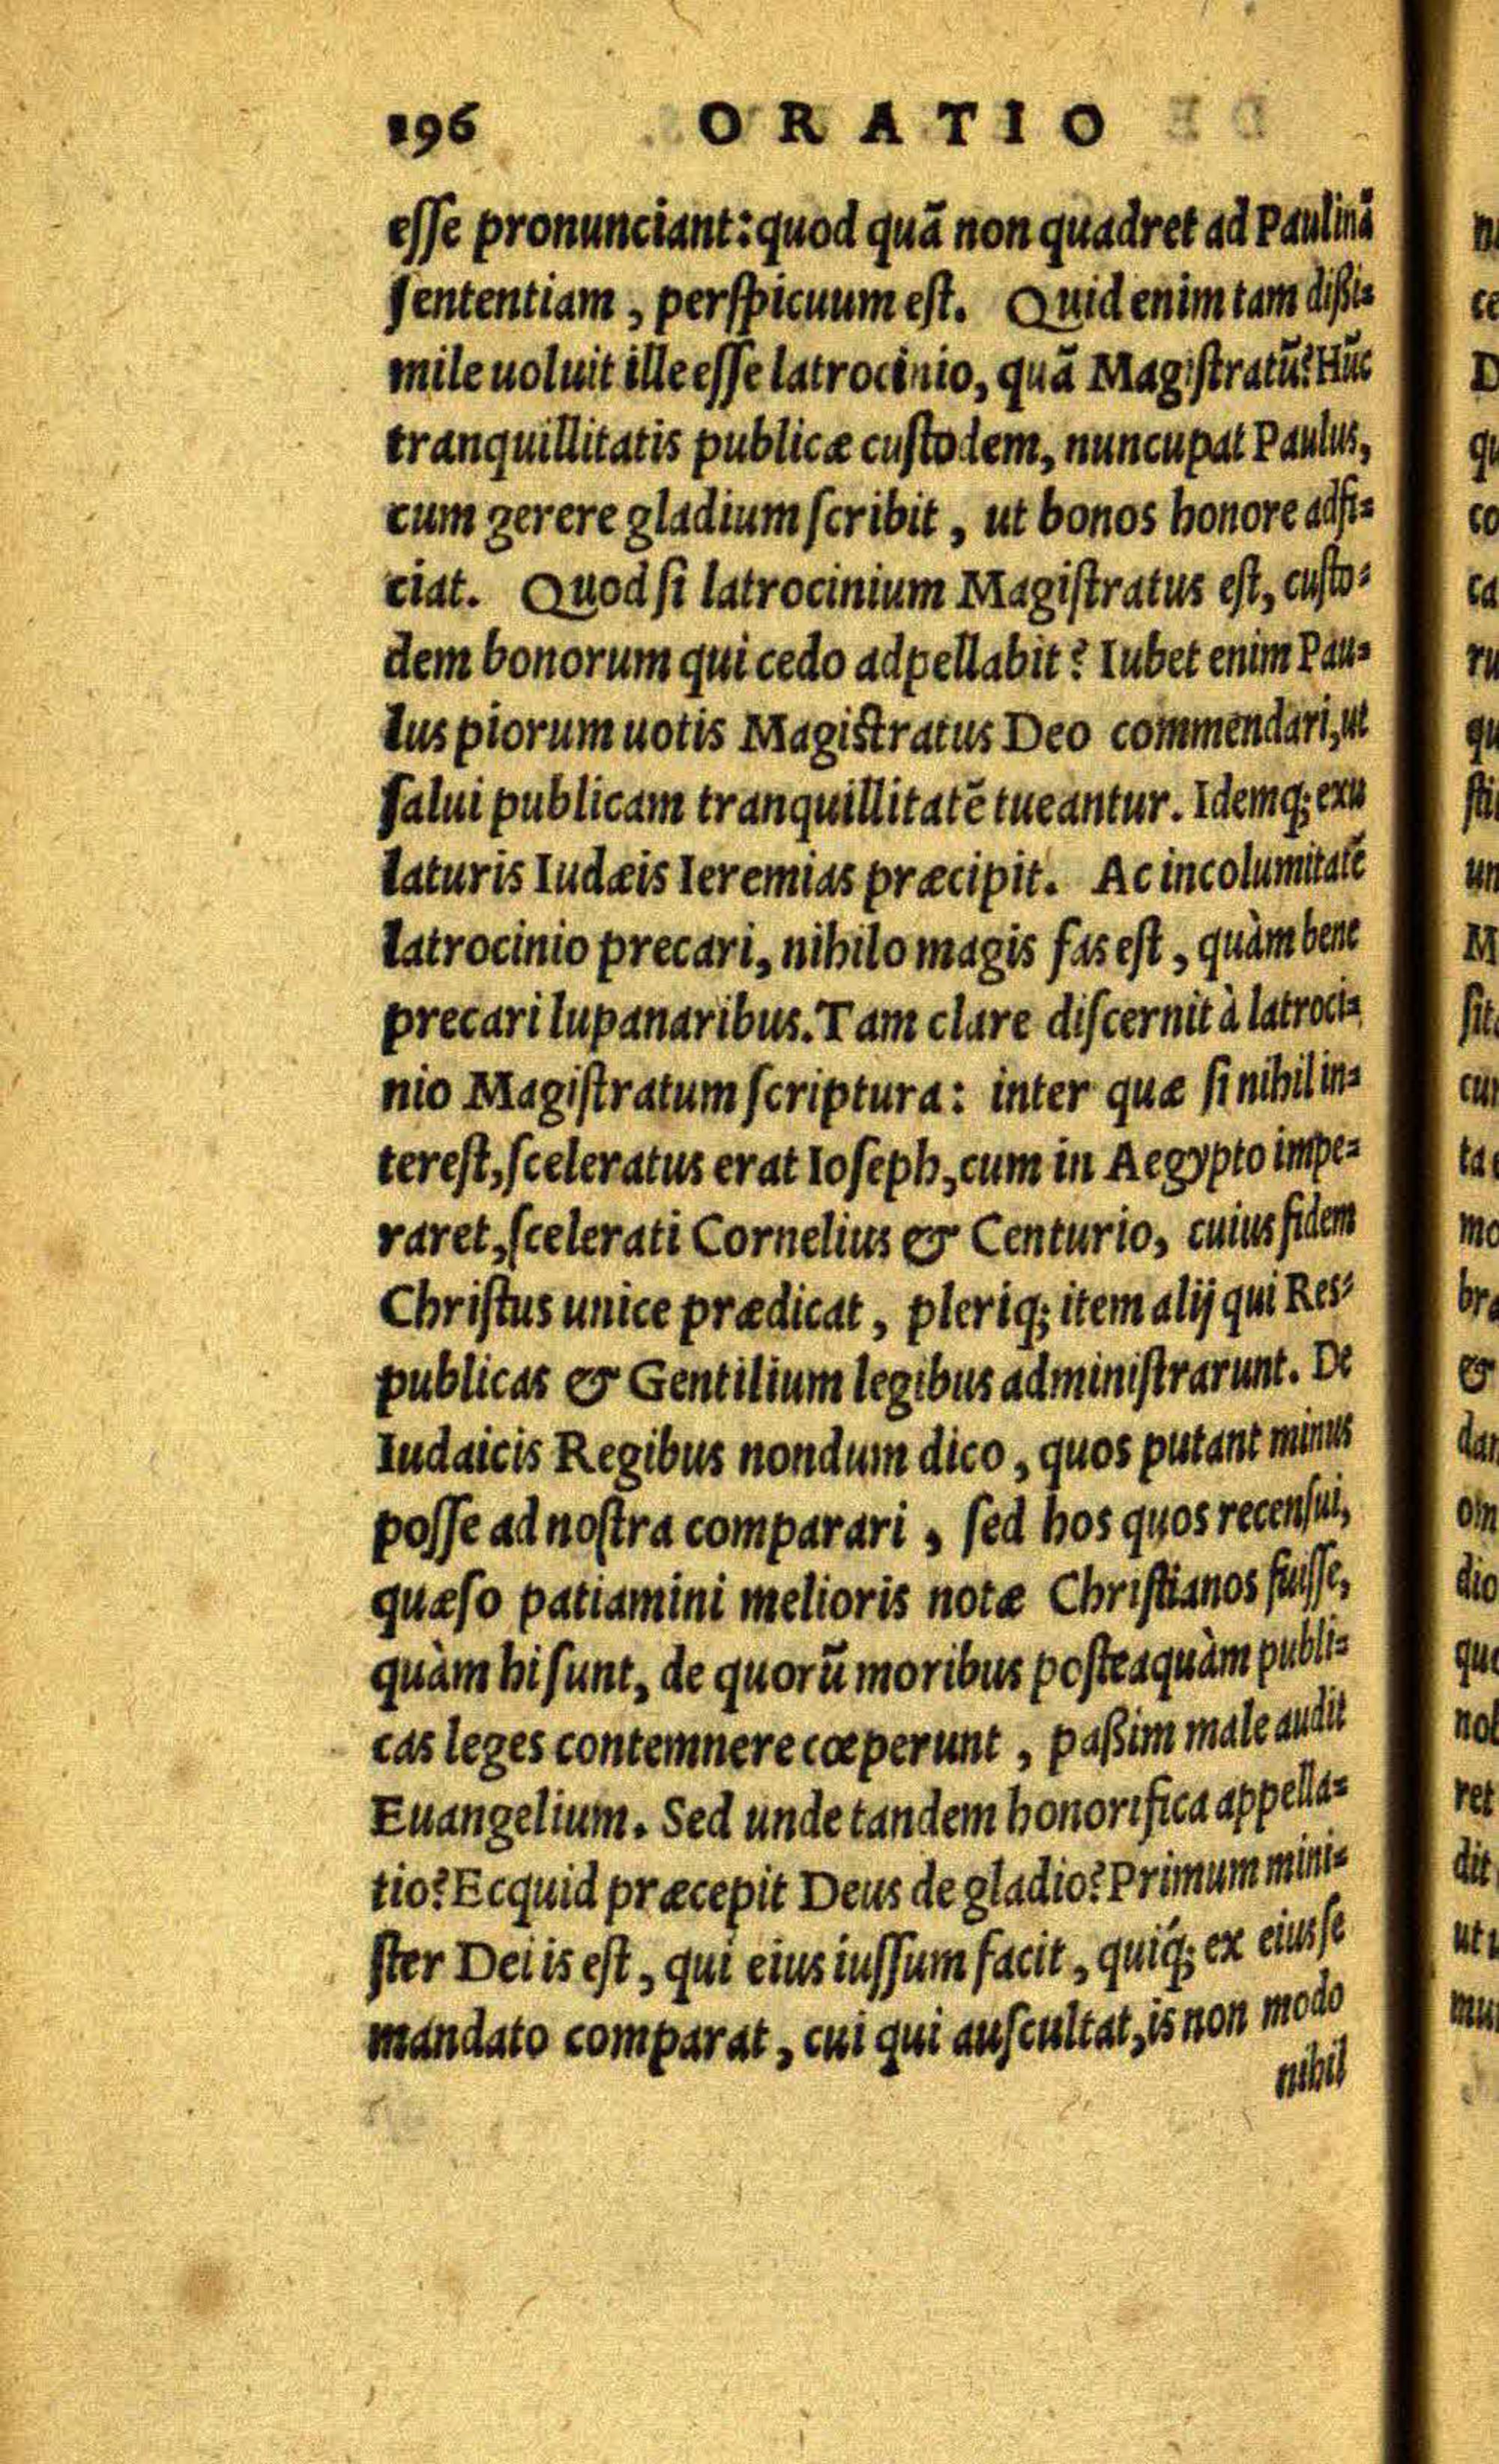 196 ORATIO
esse pronunciant: quod quā non quadret ad Paulinā
sententiam, perspicuum est. Quid enim tam dißi=
mile uoluit ille esse latrocinio, quā Magistratū? Hūc
tranquillitatis publicæ custodem, nuncupat Paulus,
cum gerere gladium scribit, ut bonos honore adfi=
ciat. Quod si latrocinium Magistratus est, custo=
dem bonorum qui cedo adpellabit? Iubet enim Pau=
lus piorum uotis Magistratus Deo commendari, ut
salui publicam tranquillitatē tueantur. Idemq; exu
laturis Iudæis Ieremias præcipit. Ac incolumitatē
latrocinio precari, nihilo magis fas est, quàm bene
precari lupanaribus. Tam clare discernit à latroci=
nio Magistratum scriptura: inter quæ si nihil in=
terest, sceleratus erat Ioseph, cum in Aegypto impe=
raret, scelerati Cornelius & Centurio, cuius fidem
Christus unice prædicat, pleriq; item alij qui Res=
publicas & Gentilium legibus administrarunt. De
Iudaicis Regibus nondum dico, quos putant minus
posse ad nostra comparari, sed hos quos recensui,
quæso patiamini melioris notæ Christianos fuisse,
quàm hi sunt, de quorū moribus posteaquàm publi=
cas leges contemnere cœperunt, paßim male audit
Euangelium. Sed unde tandem honorifica appella=
tio? Ecquid præcepit Deus de gladio? Primum mini=
ster Dei is est, qui eius iussum facit, quiq́; ex eius se
mandato comparat, cui qui auscultat, is non modo
nihil